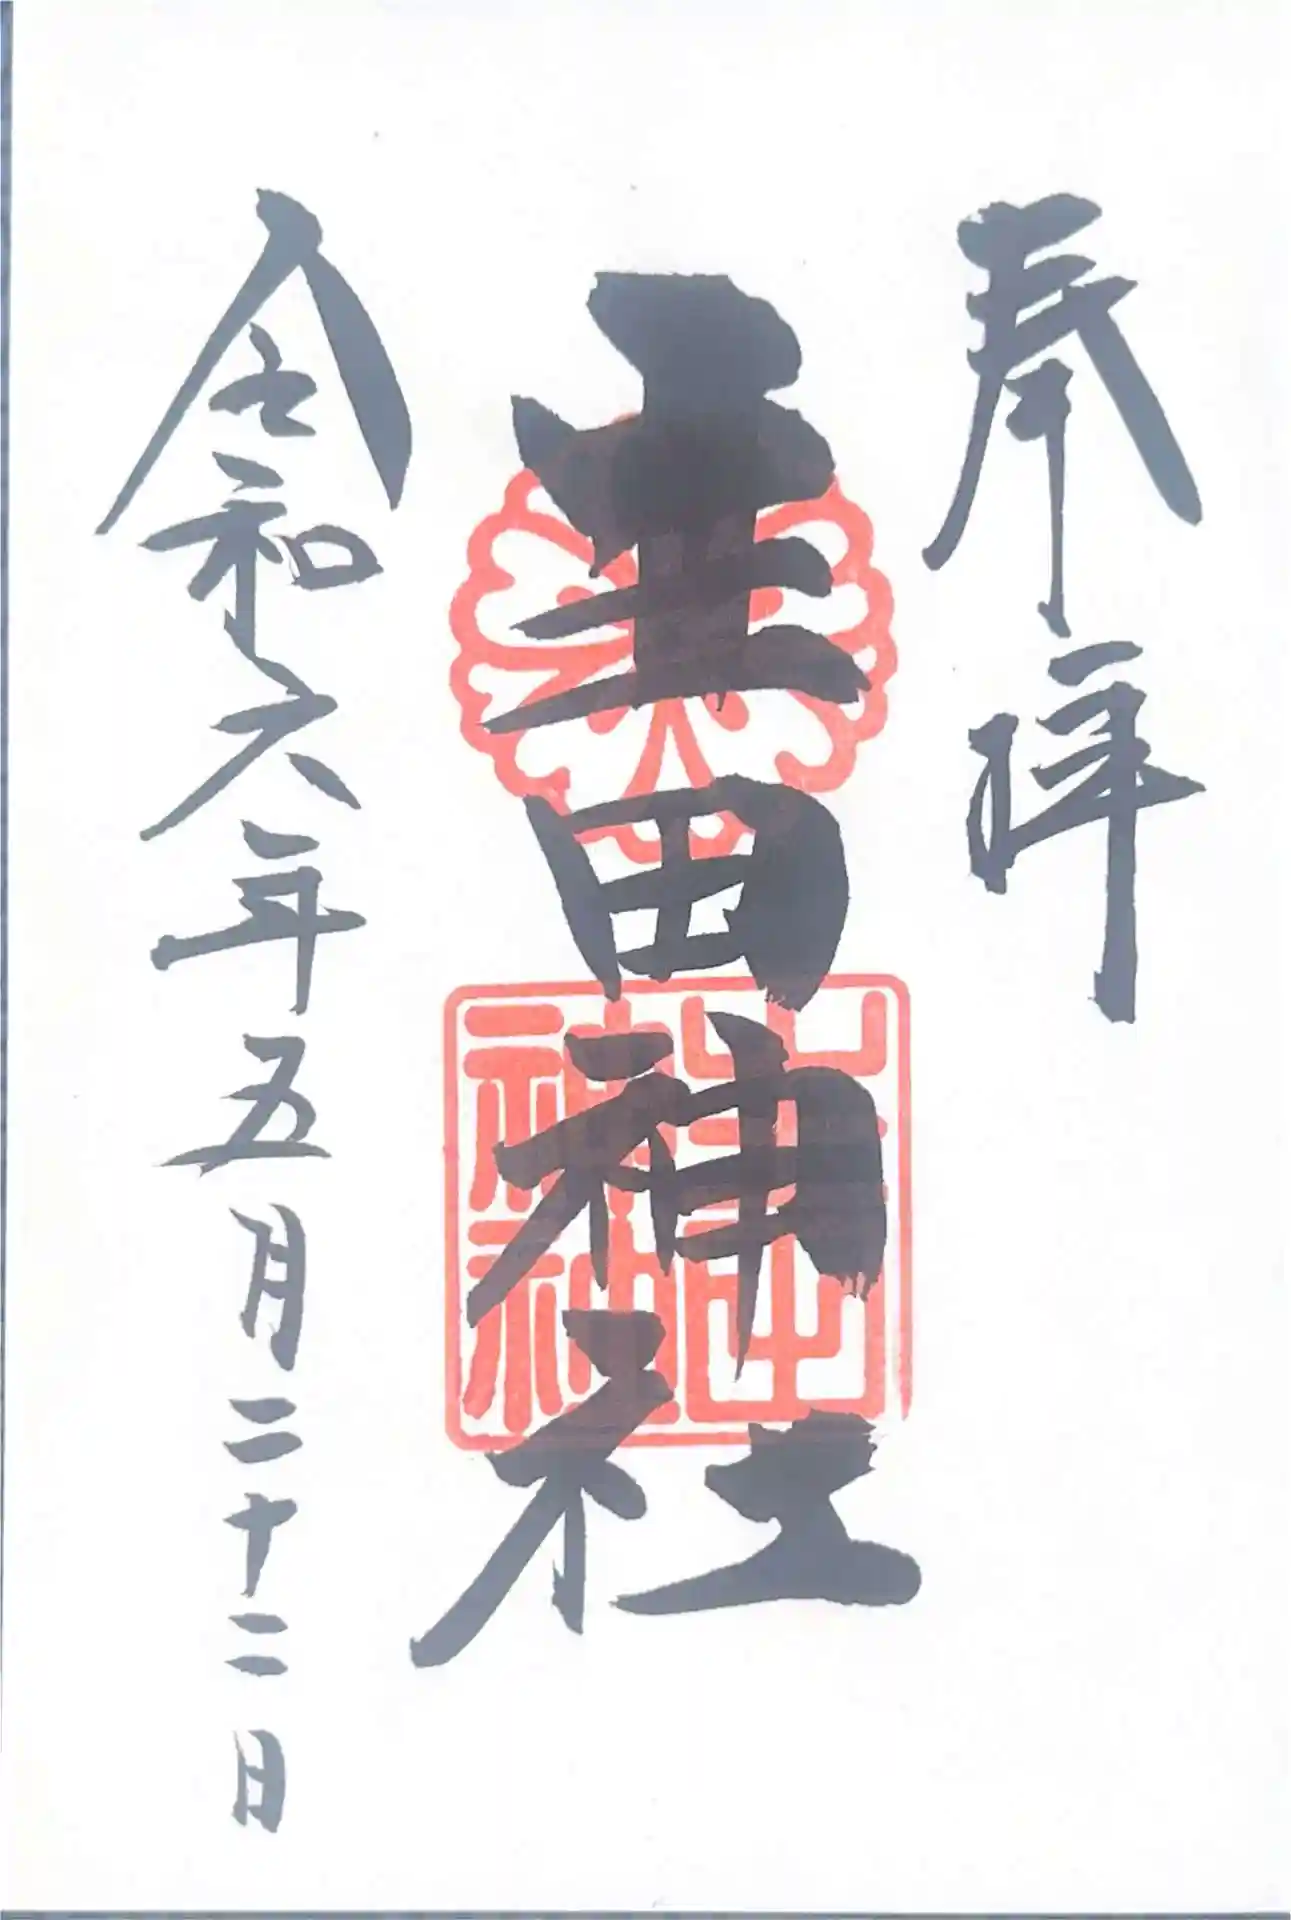 奉拝
田神社
令和六年五月二十二日
神社